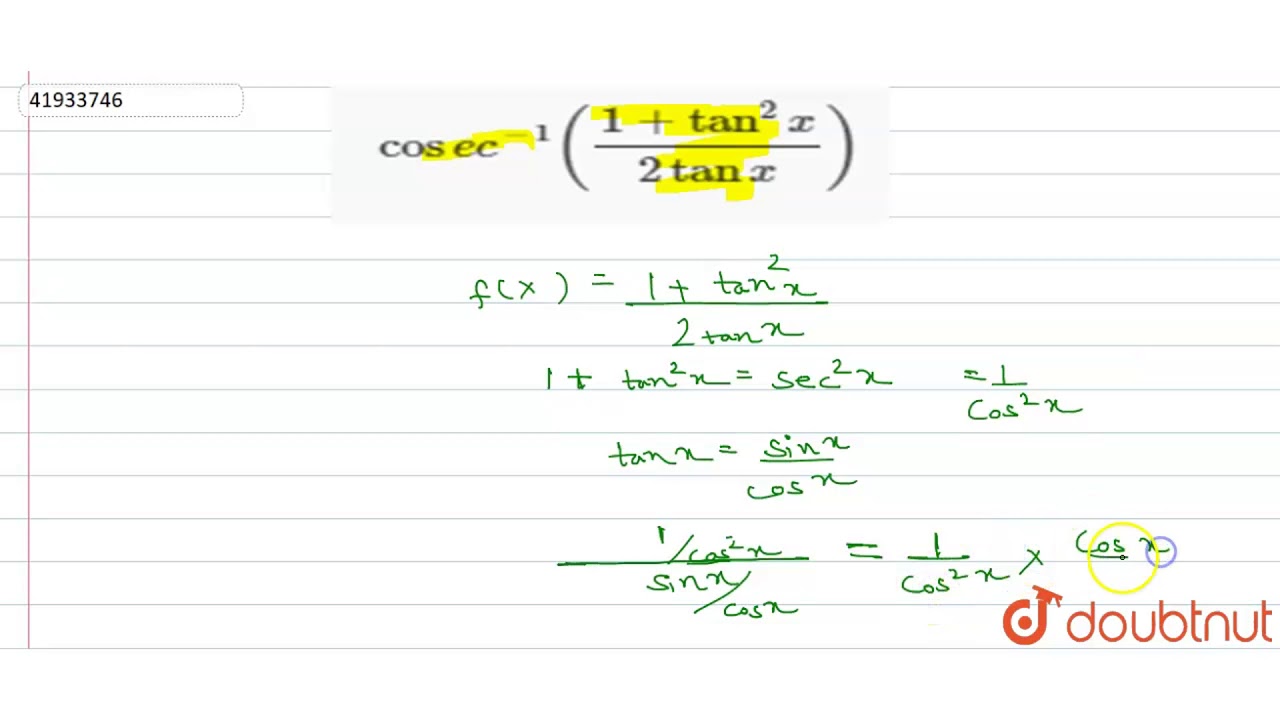 41933746
cosec⁻¹((1 + tan² x)/(2 tan x))
f(x) = (1 + tan² x)/(2 tan x)
1 + tan² x = sec² x = 1/cos² x
tan x = sin x/cos x
(1/cos² x)/(sin x/cos x) = 1/cos² x × cos x
doubtnut